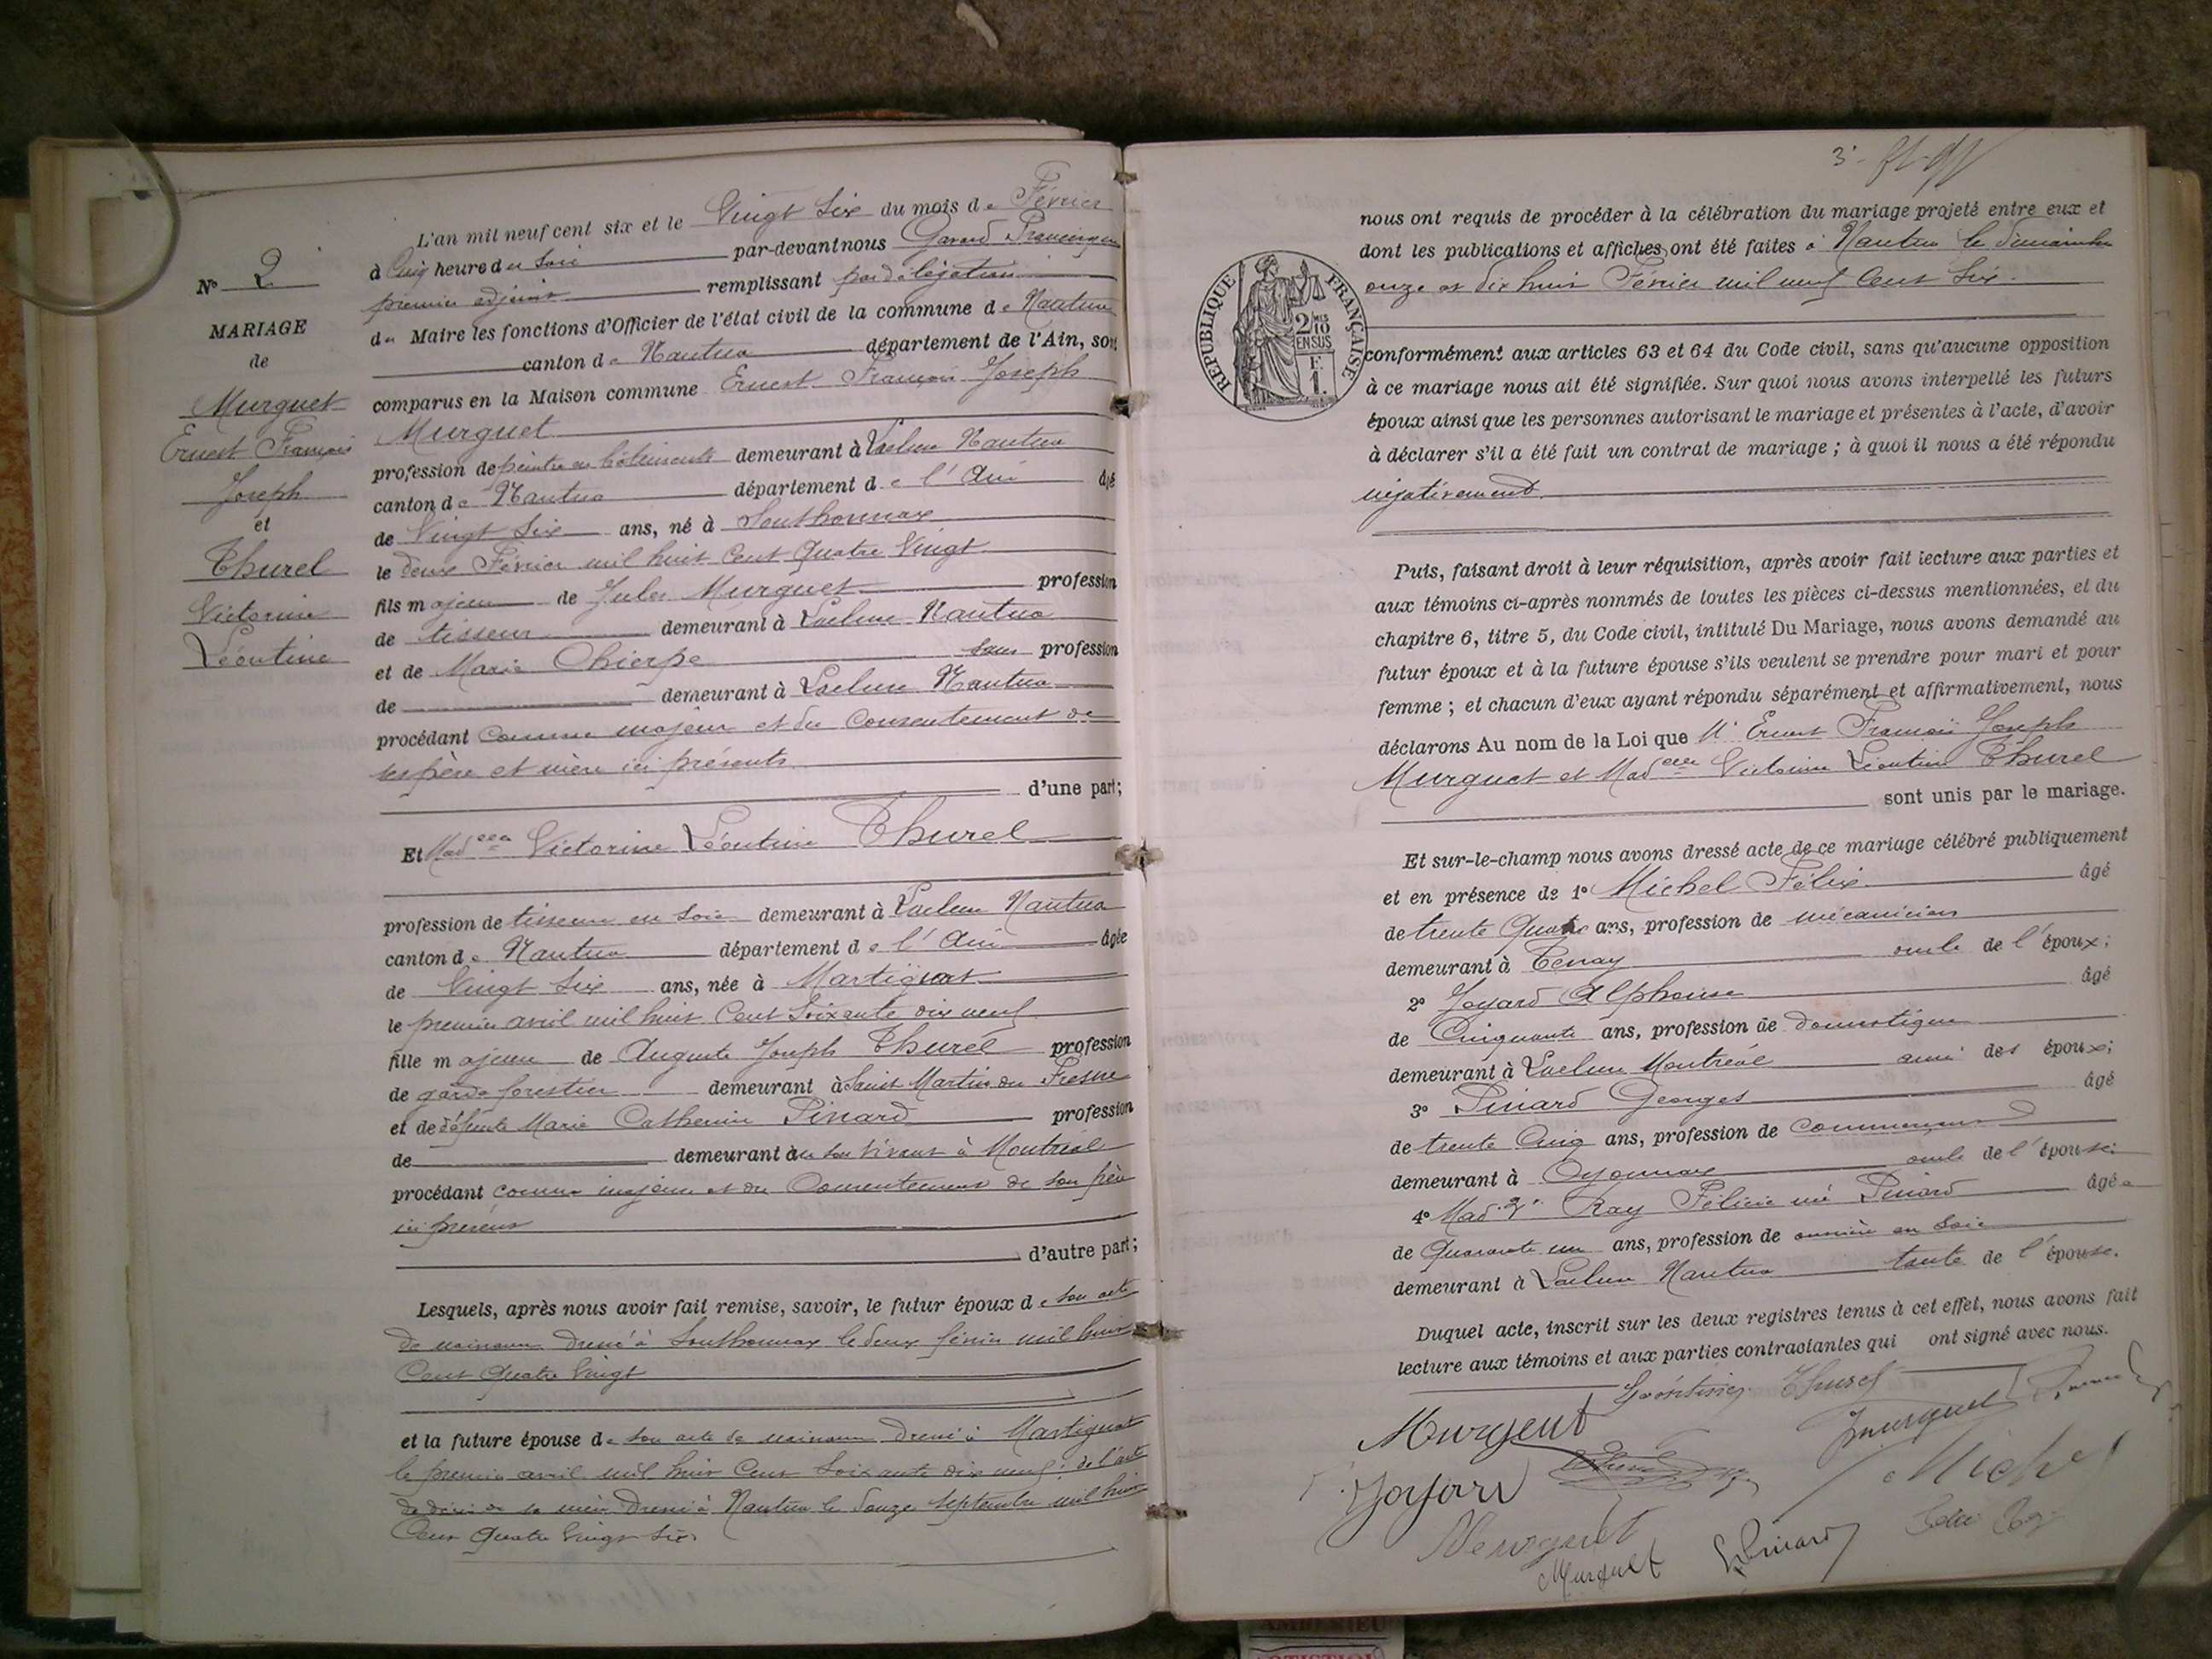 N° 2
MARIAGE
de
Murguet
Ernest François
Joseph
et
Thurel
Victorine
Léontine
L'an mil neuf cent six et le Vingt Six du mois de Février
à Cinq heure du Soir par-devant nous Gavard
premier adjoint remplissant par délégation
du Maire les fonctions d'Officier de l'état civil de la commune de Nantua
canton de Nantua département de l'Ain, sont
comparus en la Maison commune Ernest François Joseph
Murguet
profession de peintre en bâtiments demeurant à Laclun Nantua
canton de Nantua département de l'Ain âgé
de Vingt Six ans, né à Southonnax
le deux Février mil huit Cent Quatre Vingt
fils majeur de Jules Murguet profession
de tisseur demeurant à Laclun Nantua
et de Marie Chierpe sans profession
de demeurant à Laclun Nantua
procédant comme majeur et du Consentement de
ses père et mère ici présents
d'une part;
Et Mad elle Victorine Léontine Thurel
profession de tisseuse en Soie demeurant à Laclun Nantua
canton de Nantua département de l'Ain âgée
de Vingt Six ans, née à Martignat
le premier avril mil huit Cent Soixante dix neuf
fille majeure de Auguste Joseph Thurel profession
de garde forestier demeurant à Saint Martin du Fresne
et de défunte Marie Catherine Pinard profession
de demeurant à en son vivant à Montréal
procédant comme majeure et du Consentement de son père
ici présent
d'autre part;
Lesquels, après nous avoir fait remise, savoir, le futur époux de son acte
de naissance dressé à Southonnax le deux février mil huit
Cent Quatre Vingt
et la future épouse de son acte de naissance dressé à Martignat
le premier avril mil huit Cent Soixante dix neuf; de l'acte
de décès de sa mère dressé à Nantua le douze Septembre mil huit
Cent Quatre Vingt Six.
3
nous ont requis de procéder à la célébration du mariage projeté entre eux et
dont les publications et affiches ont été faites à Nantua le dimanche
onze et dix huit Février mil neuf Cent Six.
RÉPUBLIQUE FRANÇAISE
2/10 EN SUS
F. 1.
conformément aux articles 63 et 64 du Code civil, sans qu'aucune opposition
à ce mariage nous ait été signifiée. Sur quoi nous avons interpellé les futurs
époux ainsi que les personnes autorisant le mariage et présentes à l'acte, d'avoir
à déclarer s'il a été fait un contrat de mariage; à quoi il nous a été répondu
négativement
Puis, faisant droit à leur réquisition, après avoir fait lecture aux parties et
aux témoins ci-après nommés de toutes les pièces ci-dessus mentionnées, et du
chapitre 6, titre 5, du Code civil, intitulé Du Mariage, nous avons demandé au
futur époux et à la future épouse s'ils veulent se prendre pour mari et pour
femme; et chacun d'eux ayant répondu séparément et affirmativement, nous
déclarons Au nom de la Loi que M. Ernest François Joseph
Murguet et Mad elle Victorine Léontine Thurel
sont unis par le mariage.
Et sur-le-champ nous avons dressé acte de ce mariage célébré publiquement
et en présence de 1° Michel Félix âgé
de trente Quatre ans, profession de mécanicien
demeurant à Tenay oncle de l'époux;
2° Joyard Alphonse âgé
de Cinquante ans, profession de domestique
demeurant à Laclun Montréal ami des époux;
3° Pinard Georges âgé
de trente Cinq ans, profession de Commerçant
demeurant à Oyonnax oncle de l'épouse;
4° Mad Ray Félicie née Pinard âgée
de Quarante un ans, profession de ouvrière en Soie
demeurant à Laclun Nantua tante de l'épouse.
Duquel acte, inscrit sur les deux registres tenus à cet effet, nous avons fait
lecture aux témoins et aux parties contractantes qui ont signé avec nous.
Léontine Thurel
Murguet
Joyard
Michel
Murguet
Murguet
Pinard